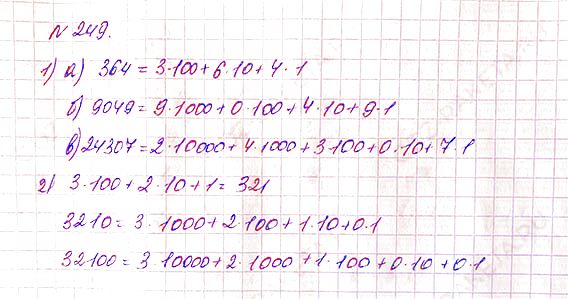 N 249.
1) а) 364 = 3·100 + 6·10 + 4·1
б) 9049 = 9·1000 + 0·100 + 4·10 + 9·1
в) 24307 = 2·10000 + 4·1000 + 3·100 + 0·10 + 7·1
2) 3·100 + 2·10 + 1 = 321
3210 = 3·1000 + 2·100 + 1·10 + 0·1
32100 = 3·10000 + 2·1000 + 1·100 + 0·10 + 0·1